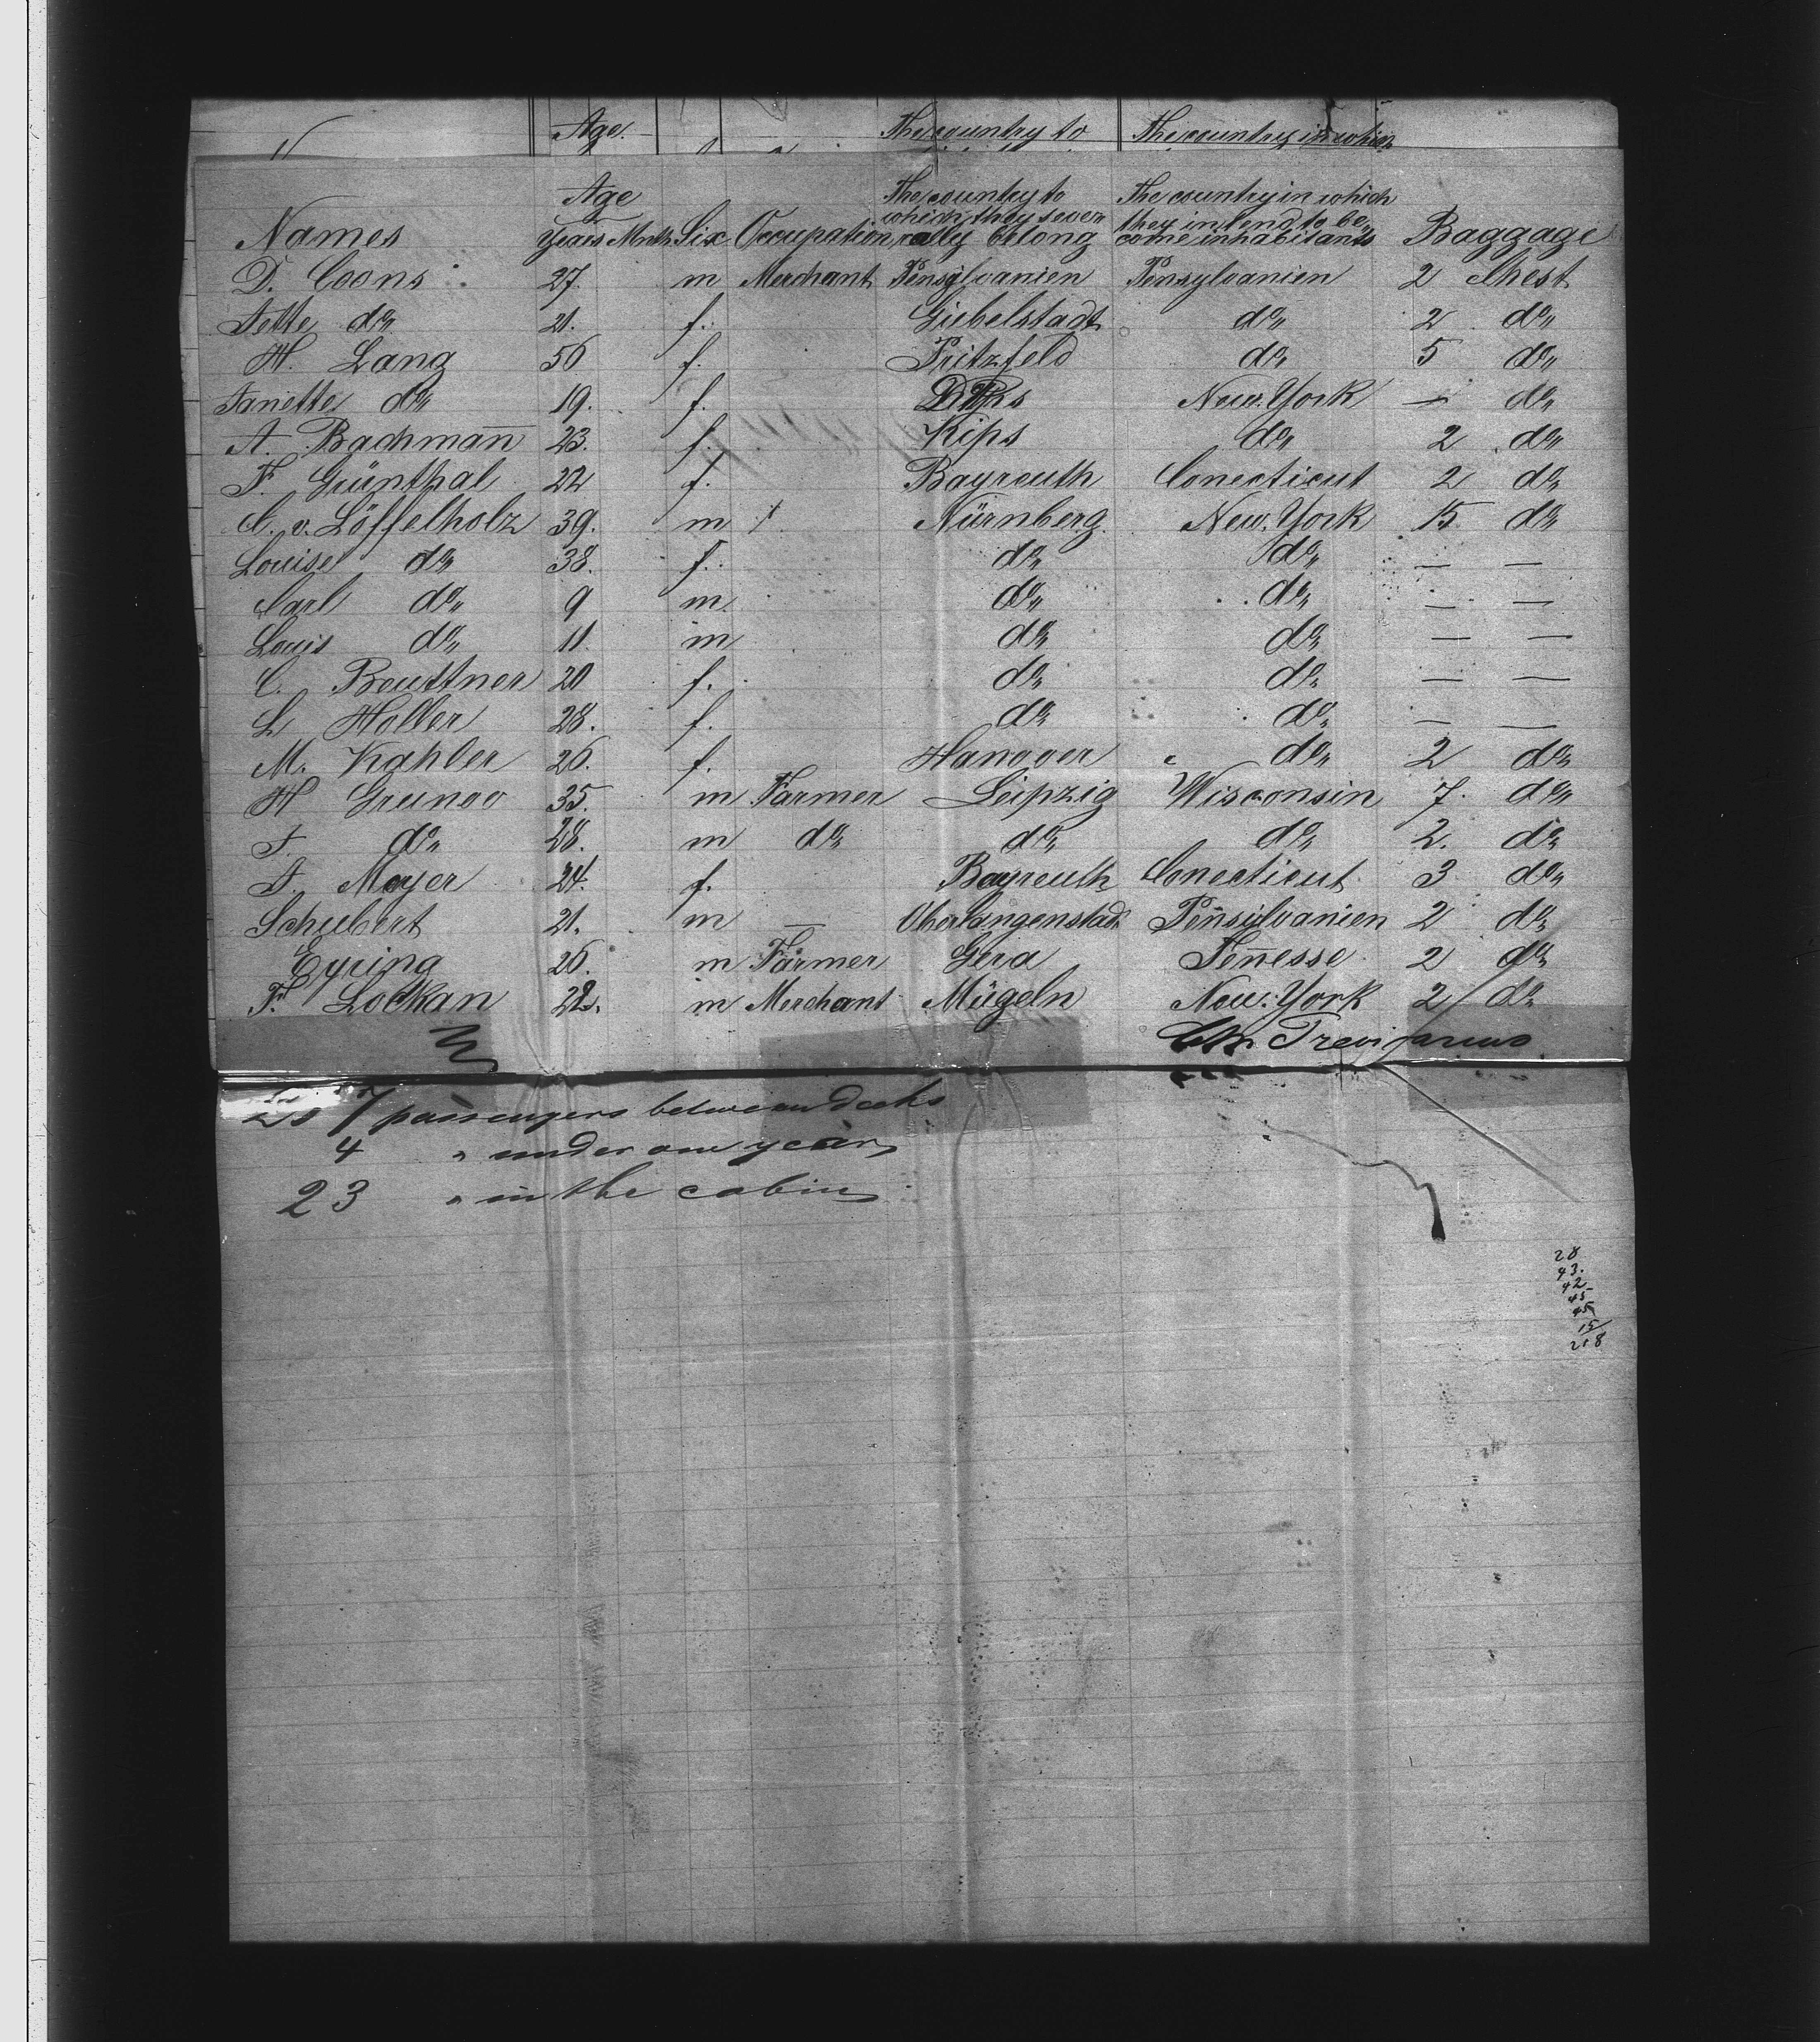 Age. The country to The country in which
Age The country to The country in which
whom they seve- they intend to be-
Names Years Mnth Six Occupation rally belong come inhabitants Baggage
D. Coons 27. m Merchant Pensylvanien Pensylvanien 2 Chest
Jette do 21. f. Giebelstadt do 2 do
H. Lang 56 f. Pritzfeld do 5 do
Janette do 19. f. New-York — do
A. Bachman̄ 23. f. Kips do 2 do
F. Grünthal 22 f. Bayreuth Conecticut 2 do
C. v. Löffelholz 39. m Nürnberg New-York 15 do
Louise do 38. f. do do — —
Carl do 9 m do do — —
Louis do 11. m do do — —
C. Beuttner 20 f. do do — —
L Holler 28. f. do do — —
M. Kahler 26. f. Hanover do 2 do
H Grunoo 35. m Farmer Leipzig Wisconsin 7. do
F. do 28. m do do do 2. do
J. Mayer 24. f. Bayreuth Conecticut 3 do
Schubert 21. m — Oberlangenstadt Pen̄sylvanien 2 do
Eyring 26. m Farmer Gera Ten̄esse 2 do
F. Lockan m Merchant Mügeln New-York 2 do
Treviranus
passengers between decks
4 " under one year
23 " in the cabin
28
43.
42
45
45
15
218